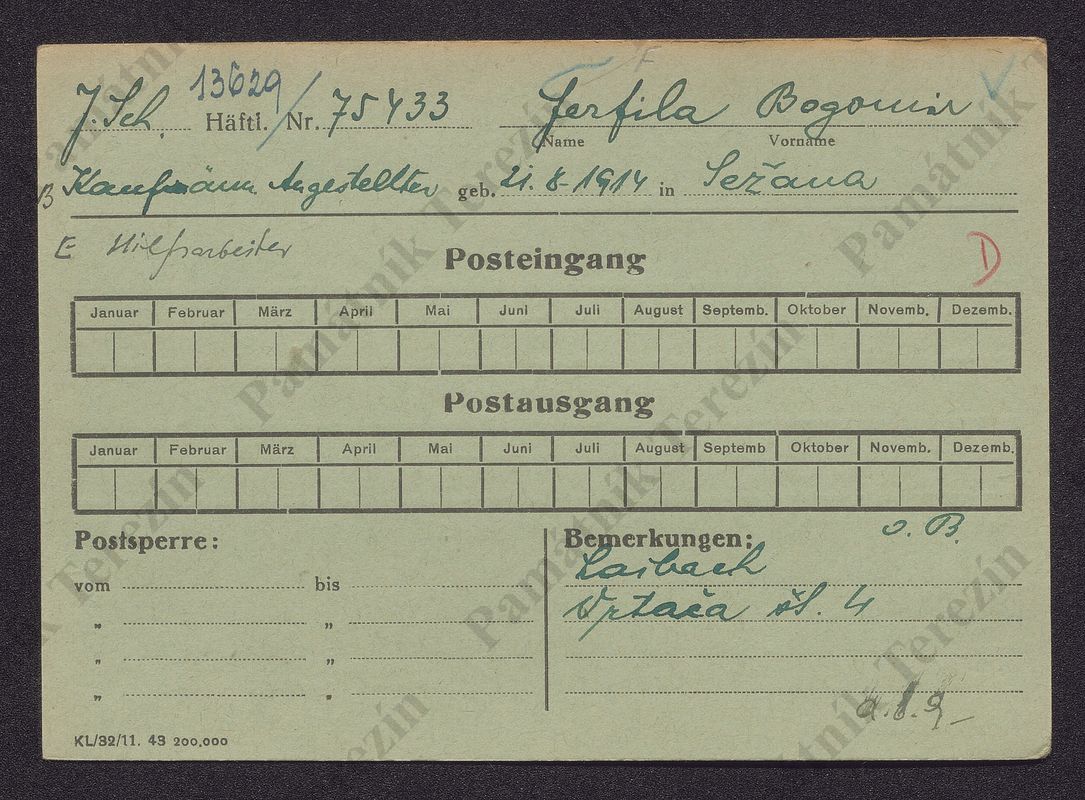 F
13629
J. Sch. Häftl. Nr. 75433 Jerfila Bogomir
Name Vorname
B Kaufmänn Angestellter geb. 21. 8. 1914 in Sežana
E Hilfsarbeiter
Posteingang D
Januar Februar März April Mai Juni Juli August Septemb. Oktober Novemb. Dezemb.
Postausgang
Januar Februar März April Mai Juni Juli August Septemb Oktober Novemb. Dezemb.
Postsperre: Bemerkungen: o. B.
Laibach
vom bis
Vrtača št. 4
" "
" "
" "
KL/32/11. 43 200.000
Památník Terezín